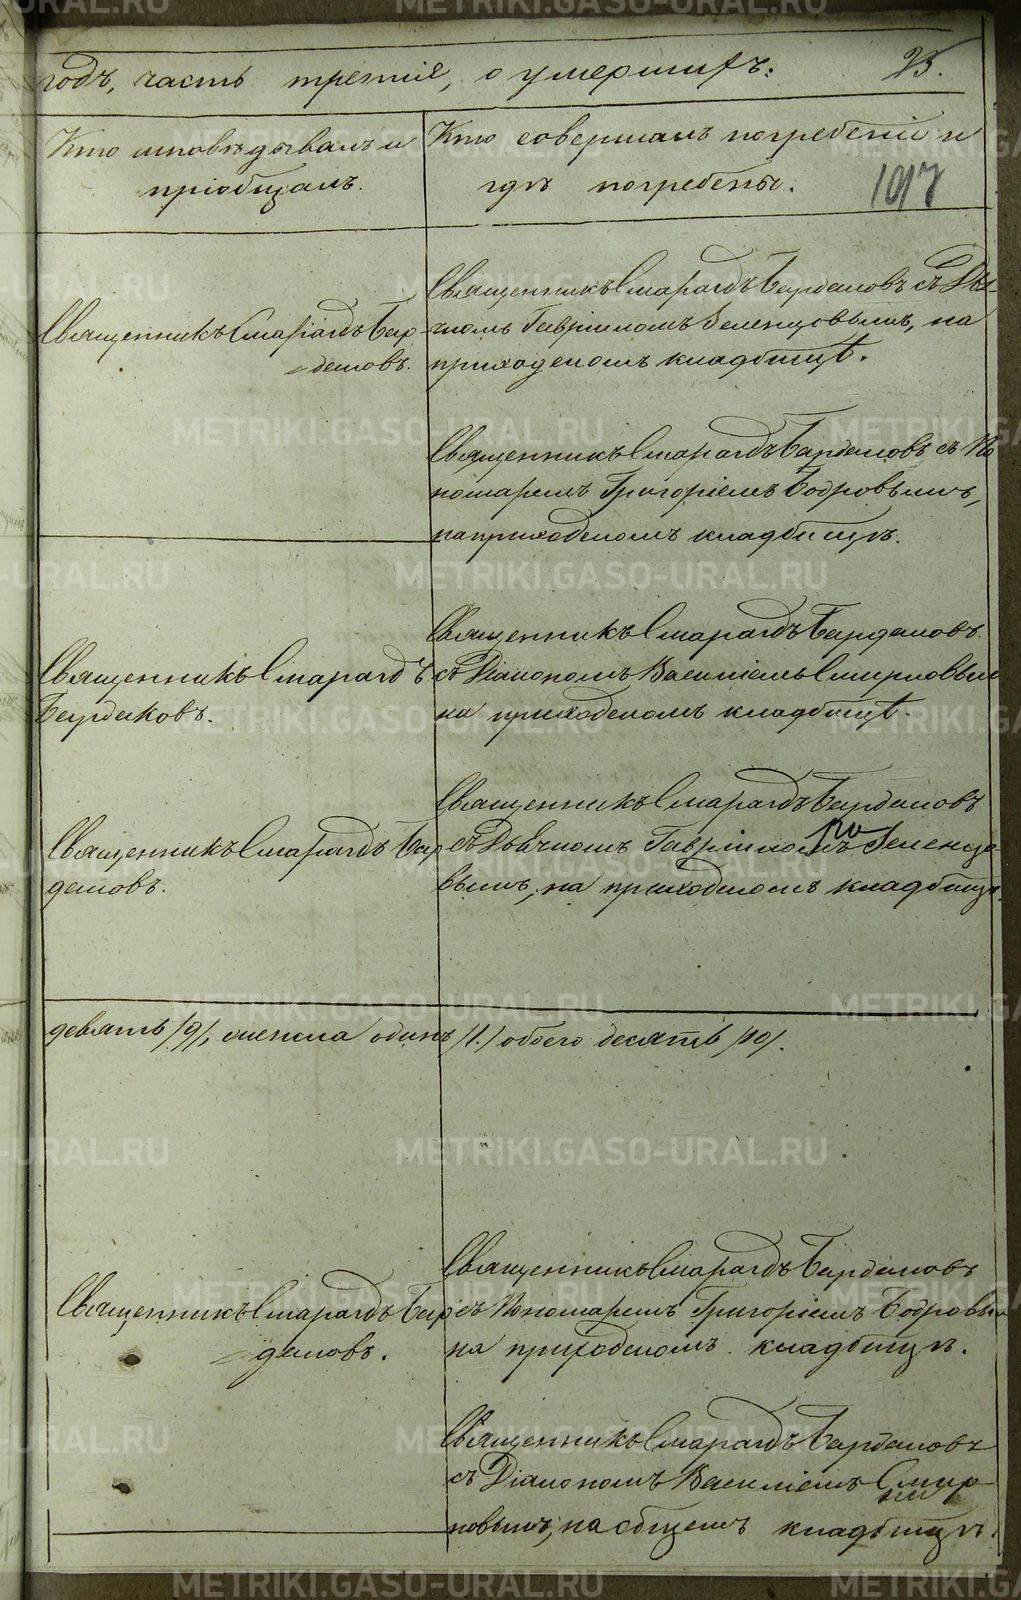 годъ, часть третія, о умершихъ: 25.
Кто исповѣдывалъ и
пріобщалъ.
Кто совершалъ погребеніе и
гдѣ погребены.
1017
Священникъ Смарагдъ Бар-
даковъ.
Священникъ Смарагдъ Бардаковъ съ Дья-
чкомъ Гавріиломъ Зеленцовымъ, на
приходскомъ кладбищѣ.
Священникъ Смарагдъ Бардаковъ съ По
номаремъ Григоріемъ Бобровымъ,
на приходскомъ кладбищѣ.
Священникъ Смарагдъ
Бардаковъ.
Священникъ Смарагдъ Бардаковъ
съ Діакономъ Василіемъ Смирновымъ
на приходскомъ кладбищѣ.
Священникъ Смарагдъ Бар
даковъ.
Священникъ Смарагдъ Бардаковъ
съ Дьячкомъ Гавріиломъ Зеленцо
вымъ, на приходскомъ кладбищѣ.
девять /9/, женска одинъ /1./ обоего десять /10/.
Священникъ Смарагдъ Бар
даковъ.
Священникъ Смарагдъ Бардаковъ
съ Пономаремъ Григоріемъ Бобровым
на приходскомъ кладбищѣ.
Священникъ Смарагдъ Бардаковъ
съ Діакономъ Василіемъ Смир-
новымъ, на общемъ кладбищѣ.
METRIKI.GASO-URAL.RU